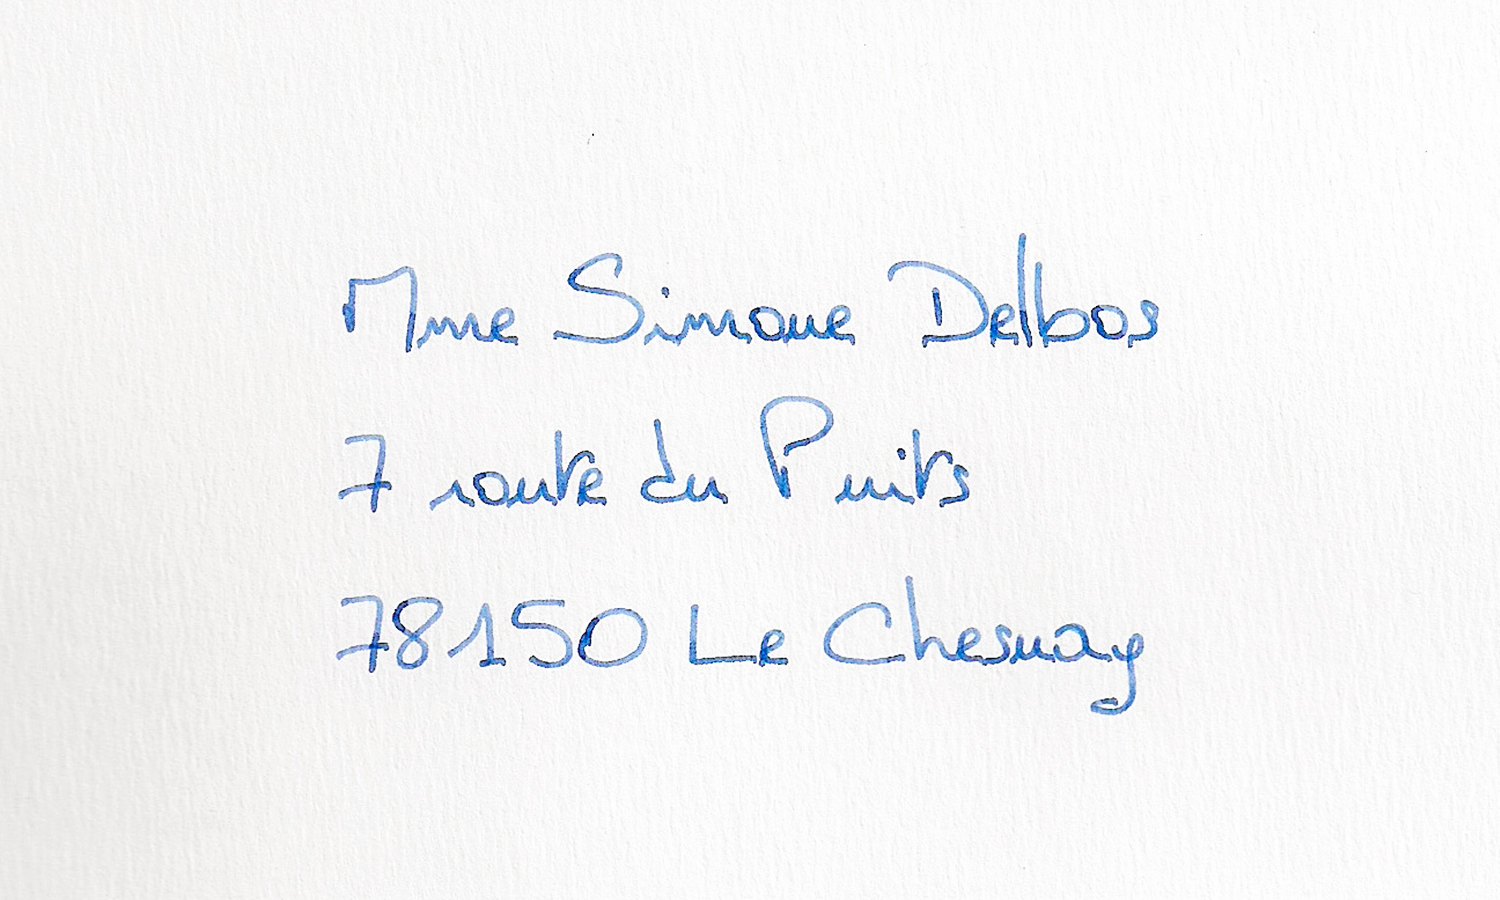 Mme Simone Delbos
7 route du Puits
78150 Le Chesnay